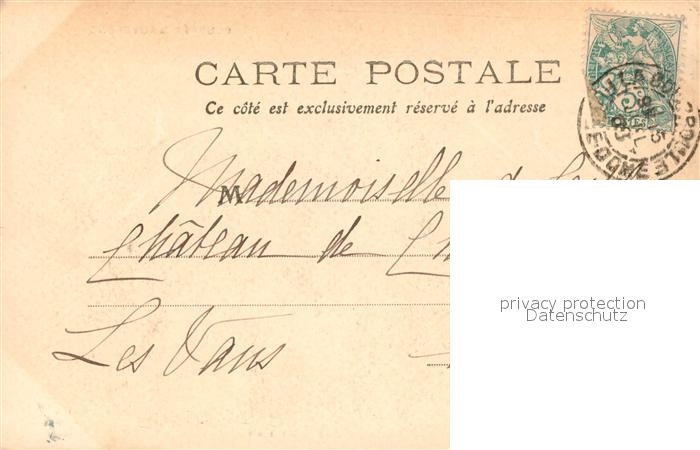 CARTE POSTALE
Ce côté est exclusivement réservé à l'adresse
M
Mademoiselle
Château de
Les Vans
privacy protection
Datenschutz